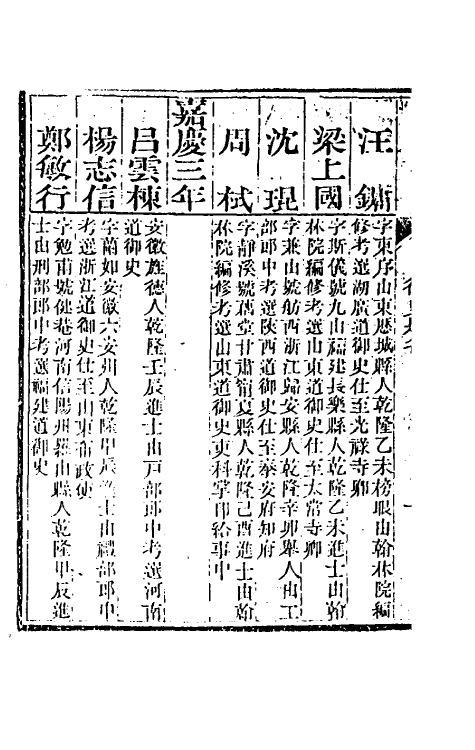 汪鏞
字東序山東歷城縣人乾隆乙未榜眼由翰林院編
修考選湖廣道御史仕至光祿寺卿
梁上國
字斯儀號九山福建長樂縣人乾隆乙未進士由翰
林院編修考選山東道御史仕至太常寺卿
沈琨
字兼山號舫西浙江歸安縣人乾隆辛卯舉人由工
部郎中考選陝西道御史仕至泰安府知府
周栻
字靜溪號 堂甘肅甯夏縣人乾隆己酉進士由翰
林院編修考選山東道御史吏科掌印給事中
嘉慶三年
呂雲棟
安徽旌德人乾隆壬辰進士由戶部郎中考選河南
道御史
楊志信
字蘭如安徽六安州人乾隆甲辰進士由禮部郎中
考選浙江道御史仕至山東布政使
鄭敏行
字勉甫號健菴河南信陽州羅山縣人乾隆甲辰進
士由刑部郎中考選福建道御史